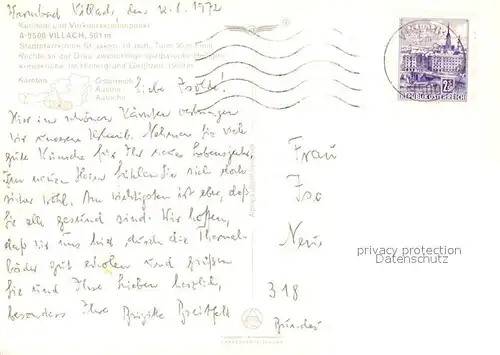 Warmbad Villach, den 12.6.1972
Kurstadt und Verkehrsknotenpunkt
A-9500 VILLACH, 501 m
Kärnten
Österreich
Austria
Autriche
Liebe Isolde!
Hier im schönen Kärnten verbringen
wir unseren Urlaub. Nehmen Sie viele
gute Wünsche für Ihr neues Lebensjahr.
Im neuen Heim fühlen Sie sich doch
sicher wohl. Am wichtigsten ist aber, daß
Sie alle gesund sind. Wir hoffen,
daß wir uns hier durch die Thermal-
bäder gut erholen und grüßen
Sie und Ihre Lieben herzlich,
besonders Ihre Brigitte Breitfeld
2S
REPUBLIK ÖSTERREICH
Frau
Iso
Neu
318
privacy protection
Datenschutz